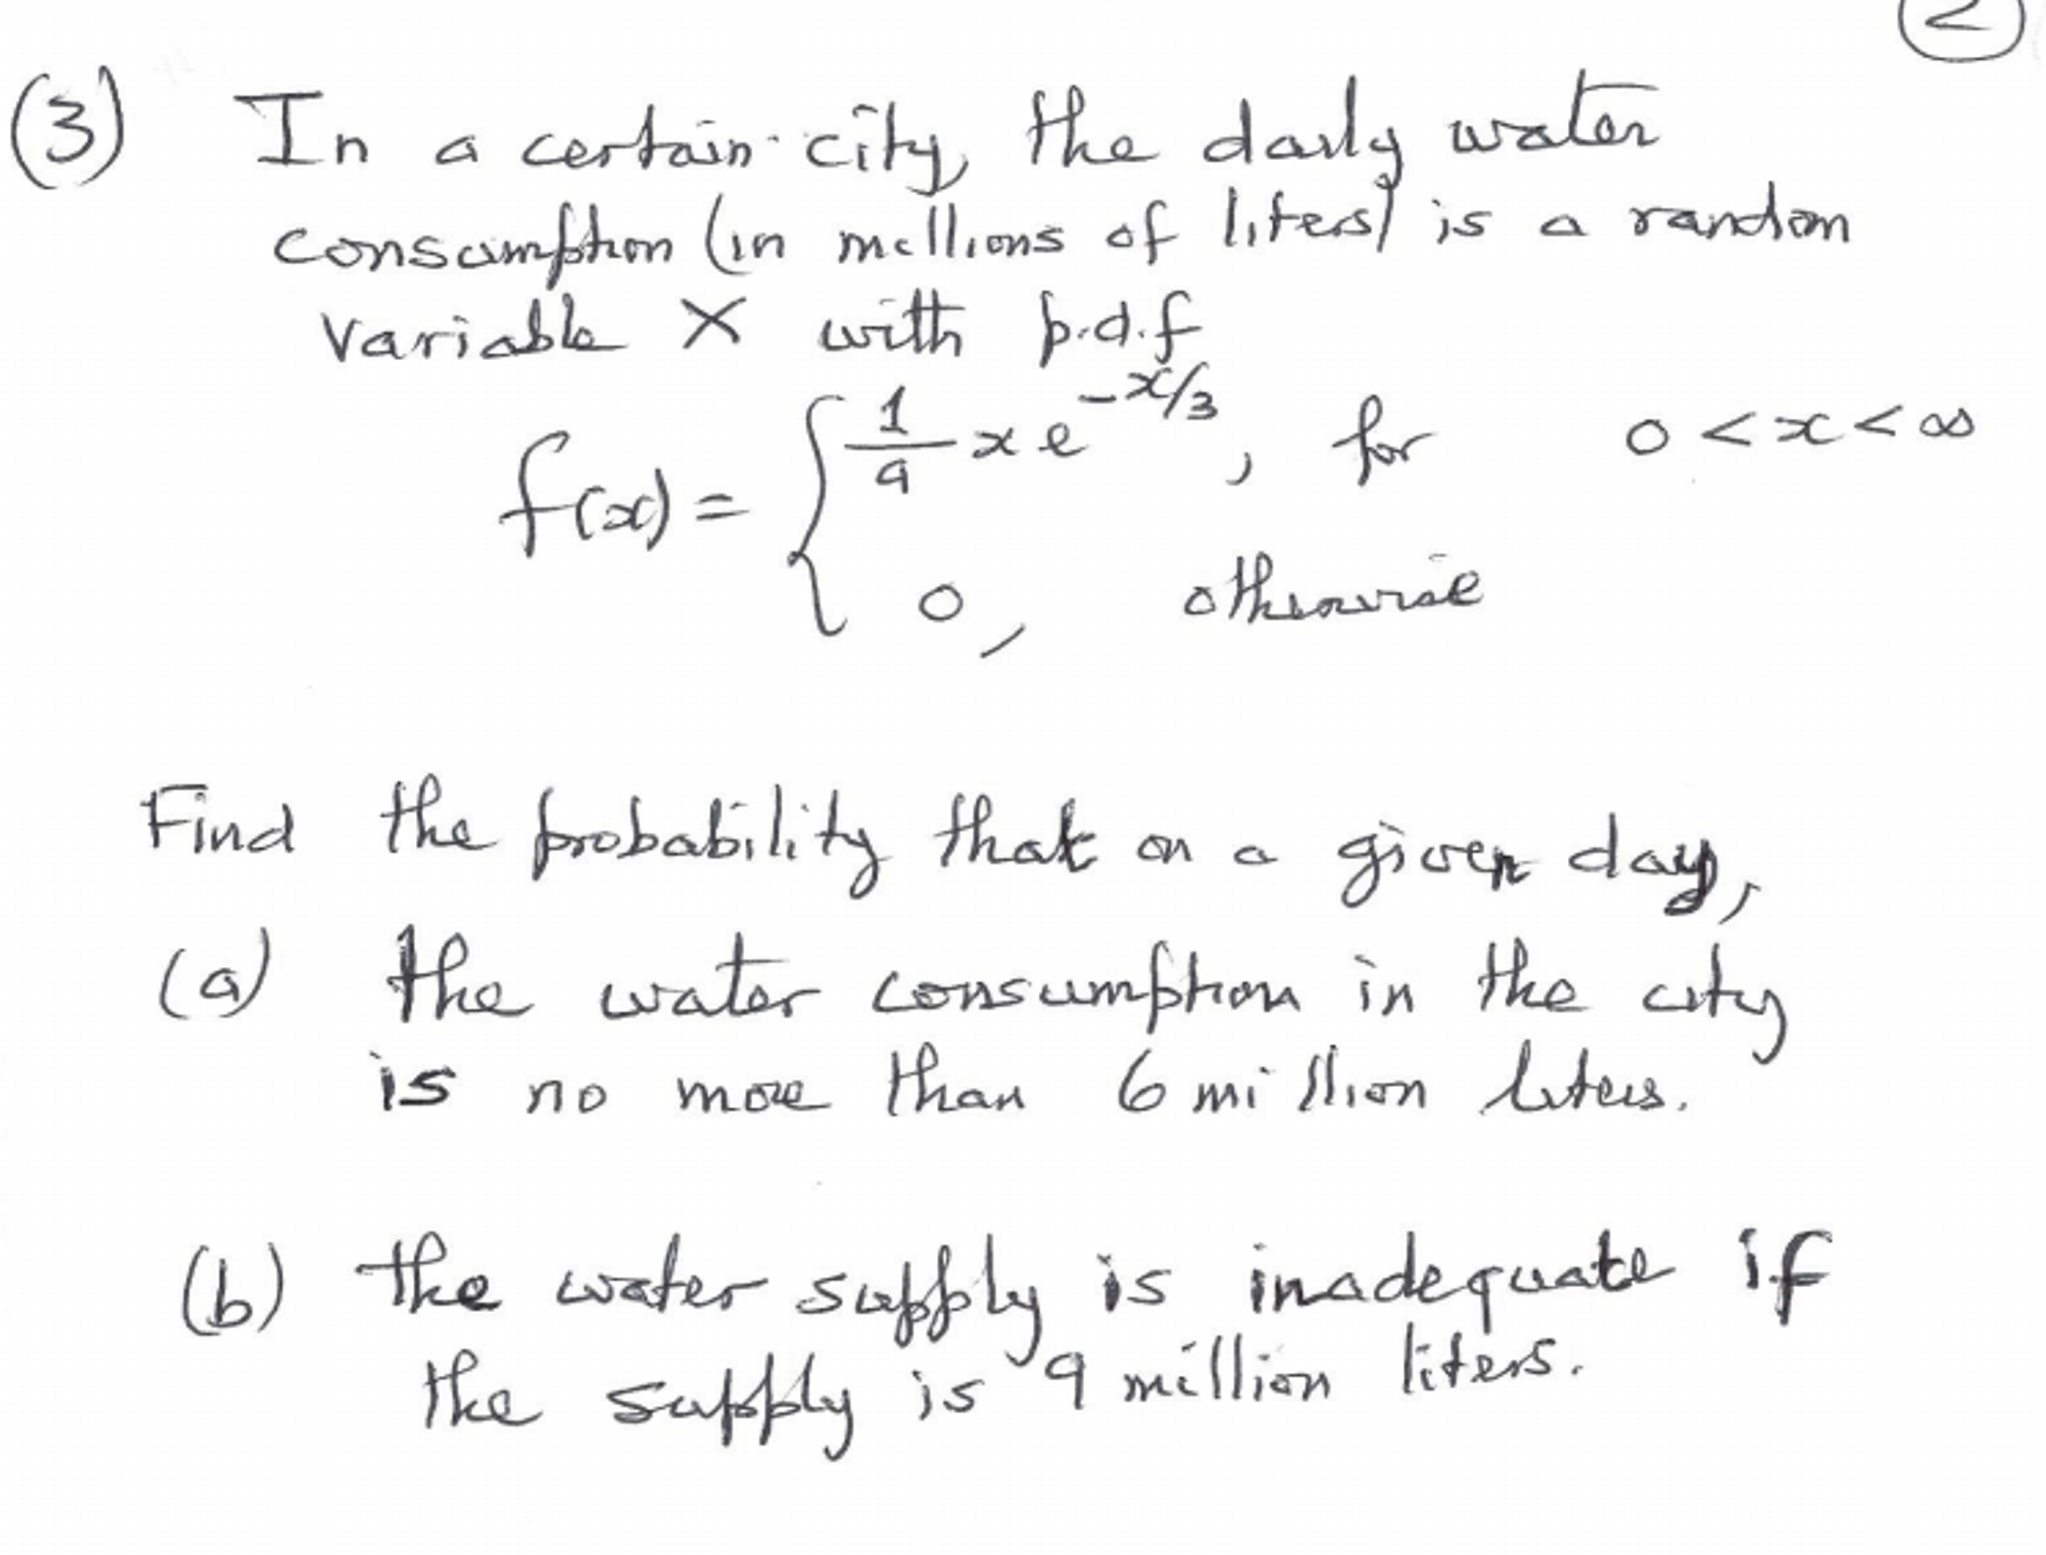 2
(3) In a certain city, the daily water
consumption (in millions of liters) is a random
variable X with p.d.f
f(x) = { 1/9 x e^{-x/3}, for 0 < x < ∞
0, otherwise
Find the probability that on a given day,
(a) the water consumption in the city
is no more than 6 million liters.
(b) the water supply is inadequate if
the supply is 9 million liters.